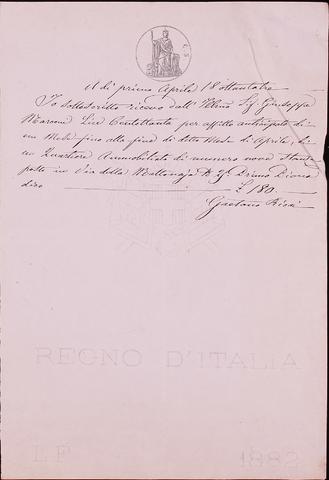 A dì primo Aprile 18 ottantatre
Io sottoscritto ricevo dall' Illmo Sig Giuseppe
Lire Centottanta per affitto anticipato di
un Mese fino alla fine di detto Mese di Aprile, di
un Quartiere Ammobiliato di numero nove Stanze
posto in Via della Mattonaja N. Primo Piano
dico £ 180.
Gaetano
REGNO D'ITALIA
L F 1882